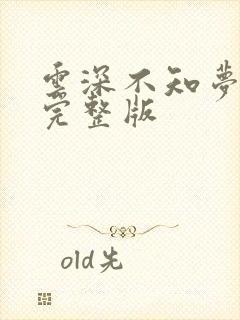 雲深不知夢
完整版
old先